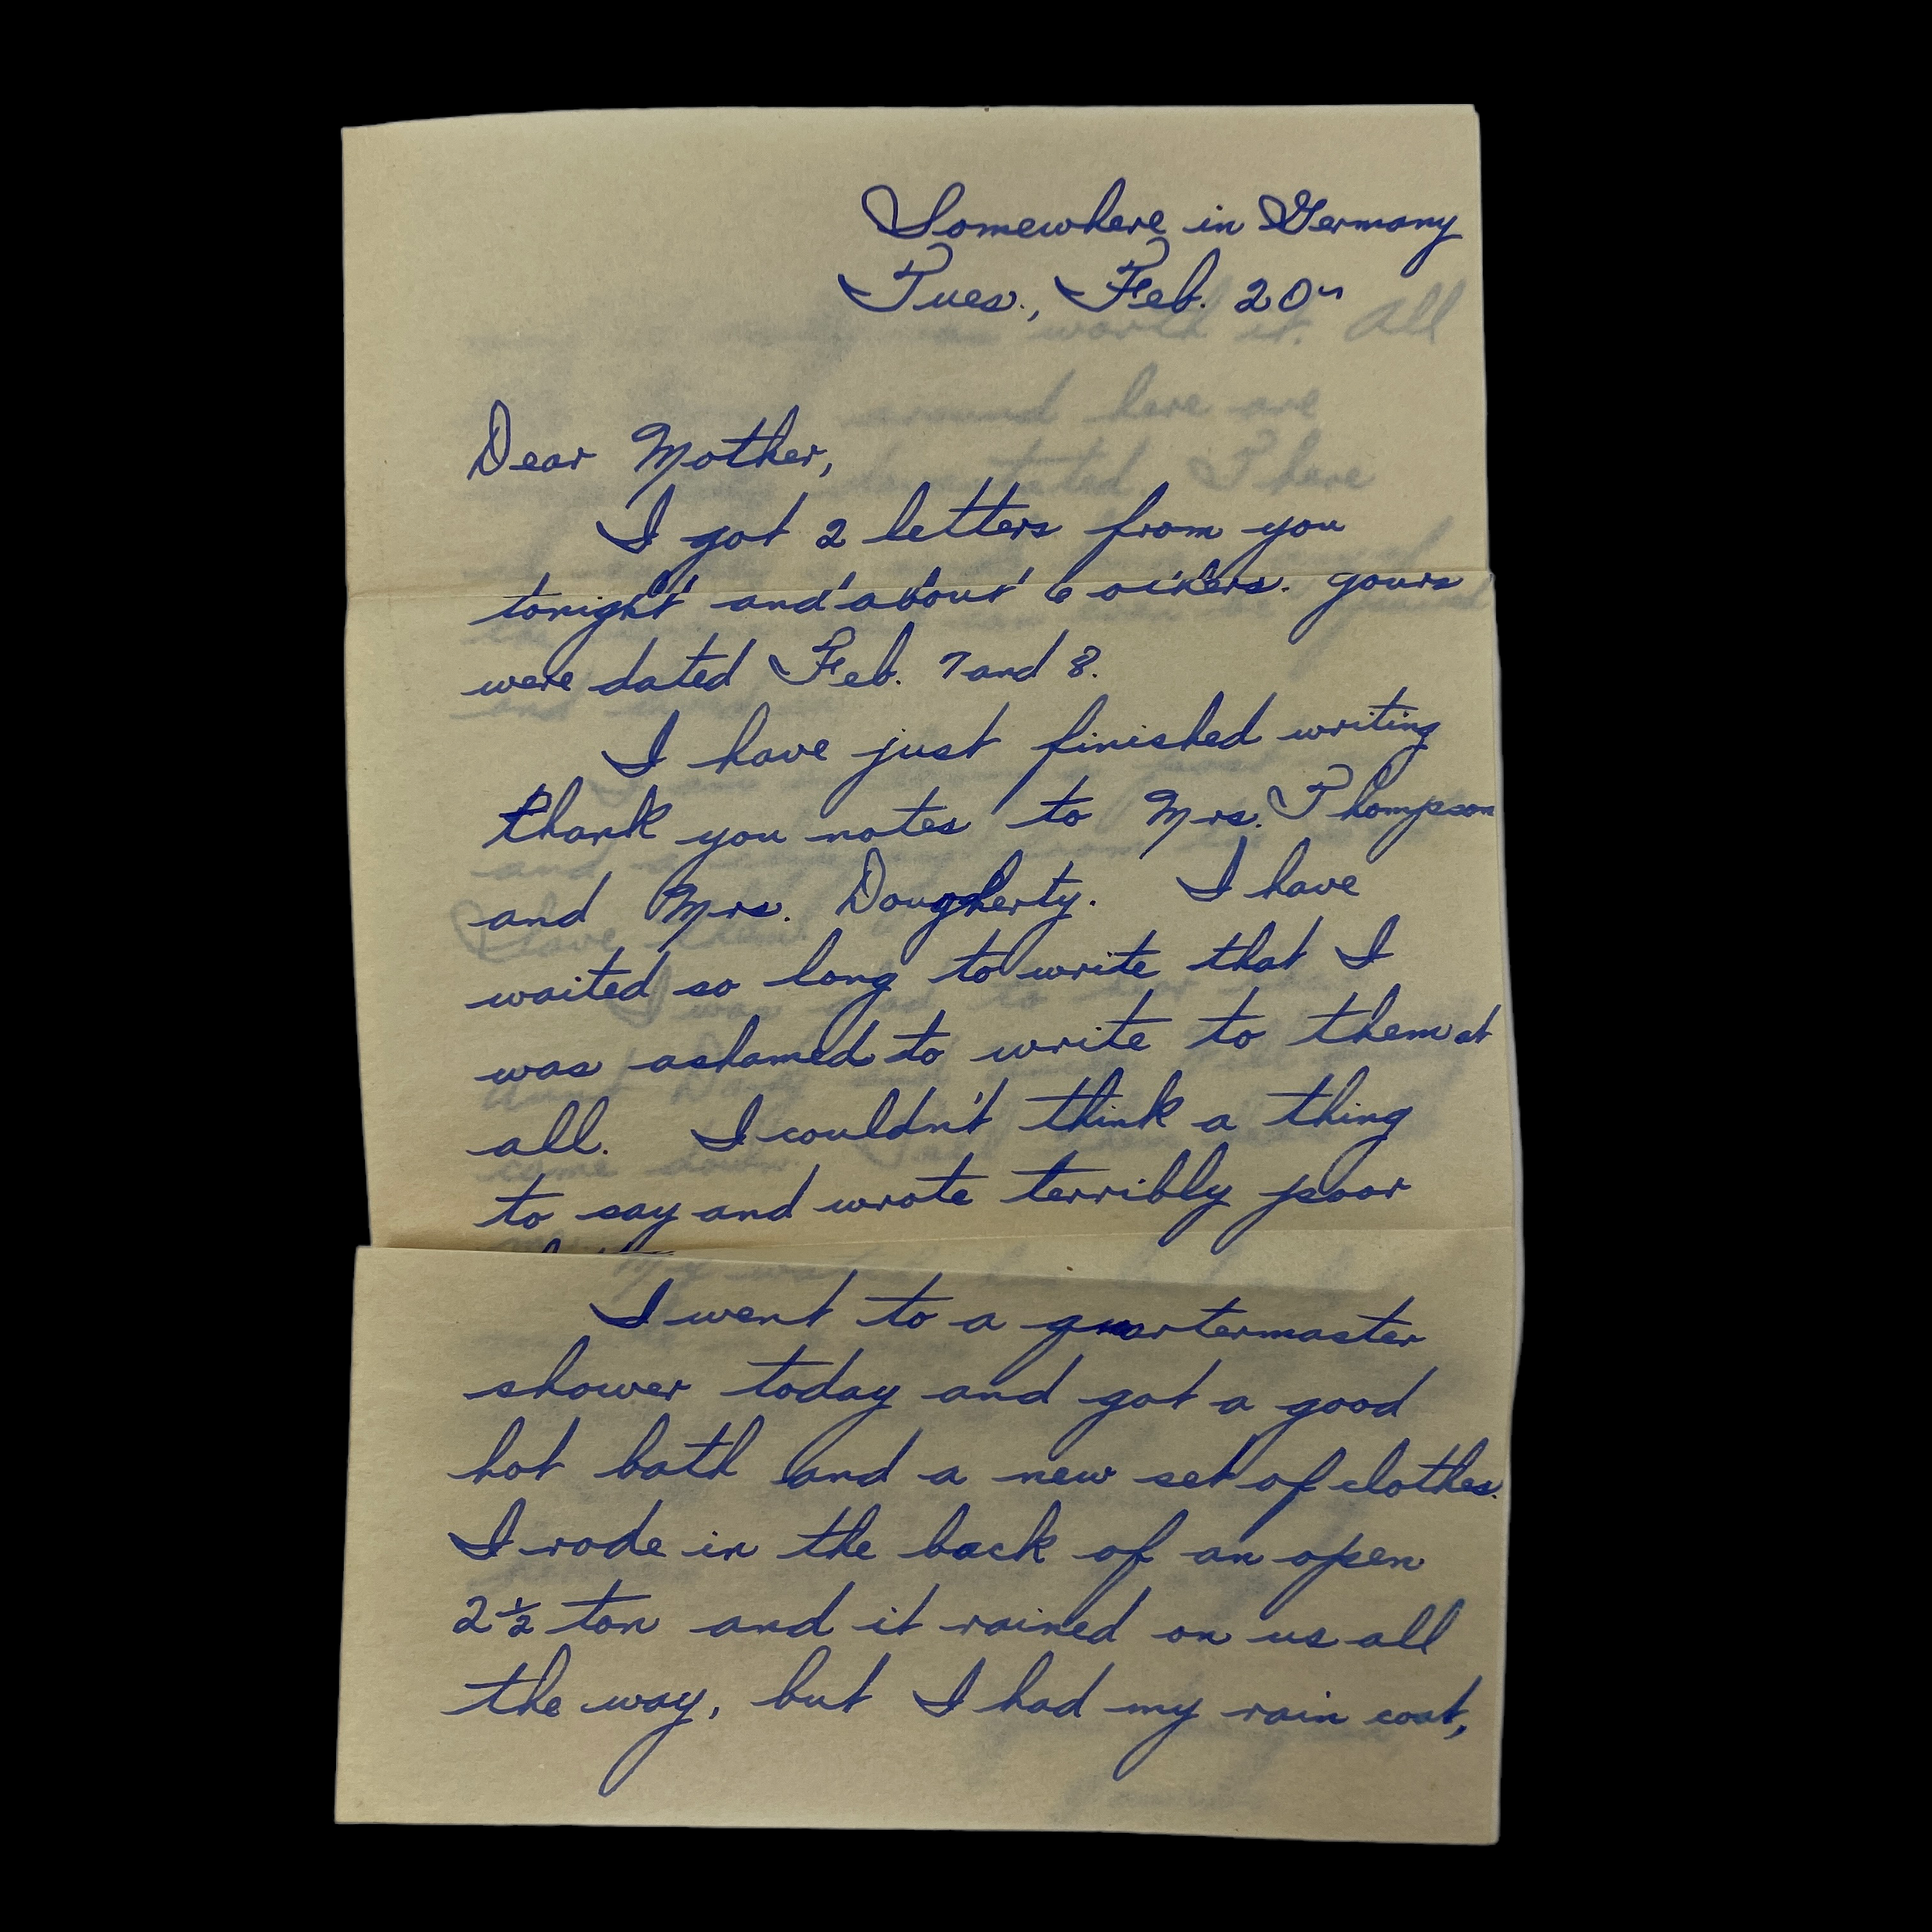 Somewhere in Germany
Tues., Feb. 20
Dear Mother,
I got 2 letters from you
tonight and about 6 others. Yours
were dated Feb. 7 and 8.
I have just finished writing
thank you notes to Mrs. Thompson
and Mrs. Dougherty. I have
waited so long to write that I
was ashamed to write to them at
all. I couldn't think a thing
to say and wrote terribly poor
I went to a quartermaster
shower today and got a good
hot bath and a new set of clothes.
I rode in the back of an open
2½ ton and it rained on us all
the way, but I had my rain coat,